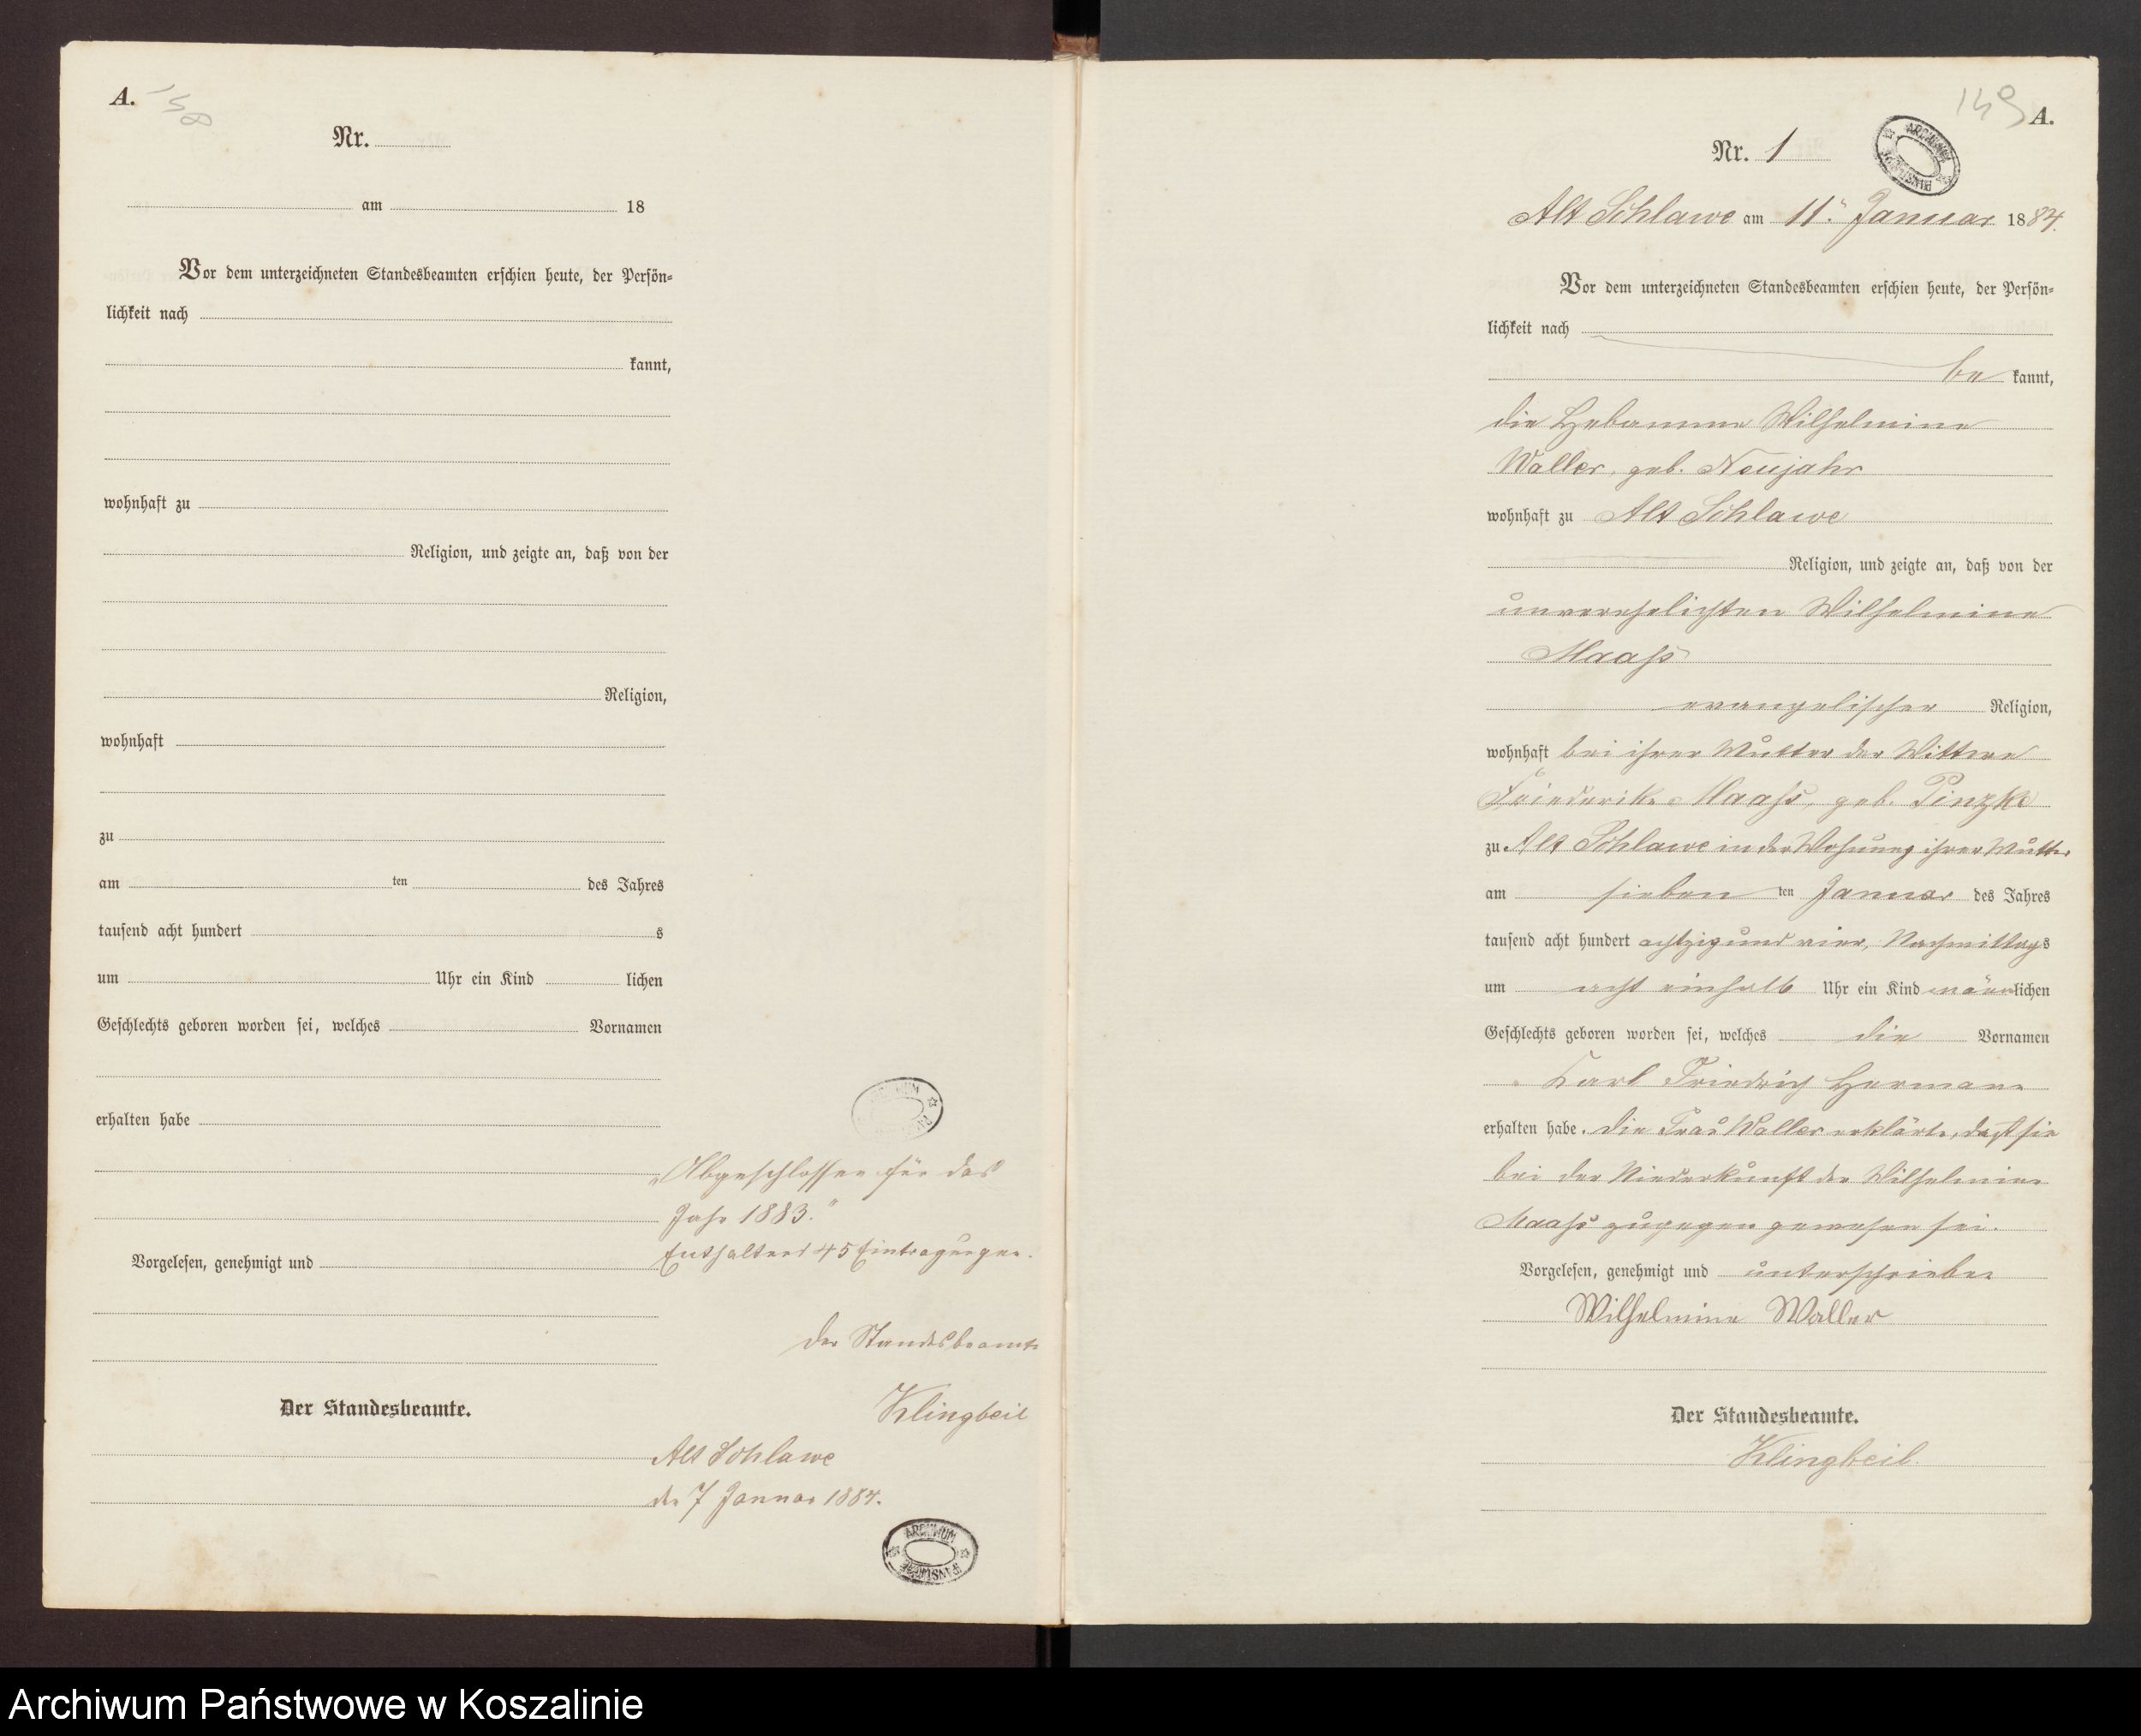 A. 158
Nr.
am 18
Vor dem unterzeichneten Standesbeamten erschien heute, der Persön=
lichkeit nach
kannt,
wohnhaft zu
Religion, und zeigte an, daß von der
Religion,
wohnhaft
zu
am ten des Jahres
tausend acht hundert s
um Uhr ein Kind lichen
Geschlechts geboren worden sei, welches Vornamen
erhalten habe
„Abgeschlossen für das
Jahr 1883."
Enthaltend 45 Eintragungen.
Vorgelesen, genehmigt und
Der Standesbeamte
Klingbeil
Der Standesbeamte.
Alt Schlawe
den 7 Januar 1884.
ARCHIWUM PAŃSTWOWE
149 A.
Nr. 1
ARCHIWUM PAŃSTWOWE
Alt Schlawe am 11. Januar 1884.
Vor dem unterzeichneten Standesbeamten erschien heute, der Persön=
lichkeit nach
be kannt,
die Hebamme Wilhelmine
Waller, geb. Neujahr
wohnhaft zu Alt Schlawe
Religion, und zeigte an, daß von der
unverehelichten Wilhelmine
Maaß
evangelischer Religion,
wohnhaft bei ihrer Mutter der Wittwe
Friederike Maaß, geb. Pinzke
zu Alt Schlawe in der Wohnung ihrer Mutter
am sieben ten Januar des Jahres
tausend acht hundert achtzig und vier, Nachmittags
um acht einhalb Uhr ein Kind männlichen
Geschlechts geboren worden sei, welches die Vornamen
Karl Friedrich Hermann
erhalten habe. Die Frau Waller erklärte, daß sie
bei der Niederkunft der Wilhelmine
Maaß zugegen gewesen sei.
Vorgelesen, genehmigt und unterschrieben
Wilhelmine Waller
Der Standesbeamte.
Klingbeil.
Archiwum Państwowe w Koszalinie